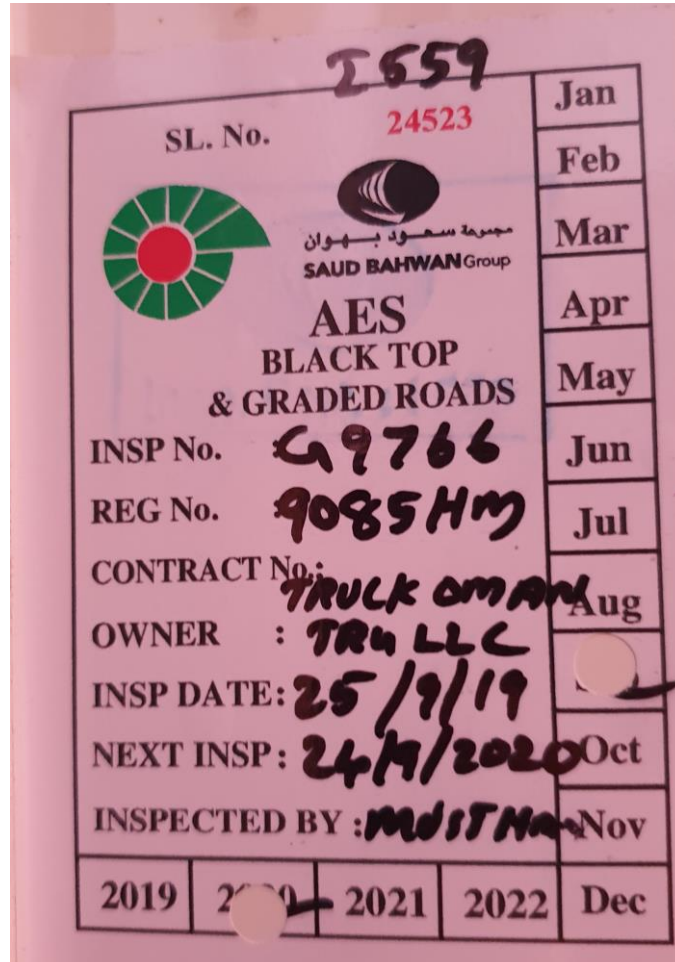 I559
SL. No. 24523
مجموعة سعود بهوان
SAUD BAHWAN Group
AES
BLACK TOP
& GRADED ROADS
INSP No. G9766
REG No. 9085HM
CONTRACT No.:
TRUCK OMAN
OWNER : TRU LLC
INSP DATE: 25/9/19
NEXT INSP: 24/9/2020
INSPECTED BY :
2019 2021 2022
Jan
Feb
Mar
Apr
May
Jun
Jul
Aug
Oct
Nov
Dec